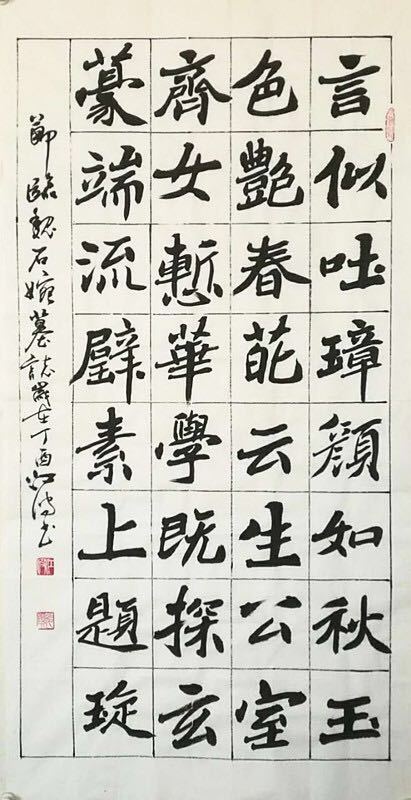 言似吐璋顔如秋玉
色艷春葩云生公室
齊女慙華學既探玄
豪端流璧素上題琁
節臨魏石婉墓誌歲在丁酉